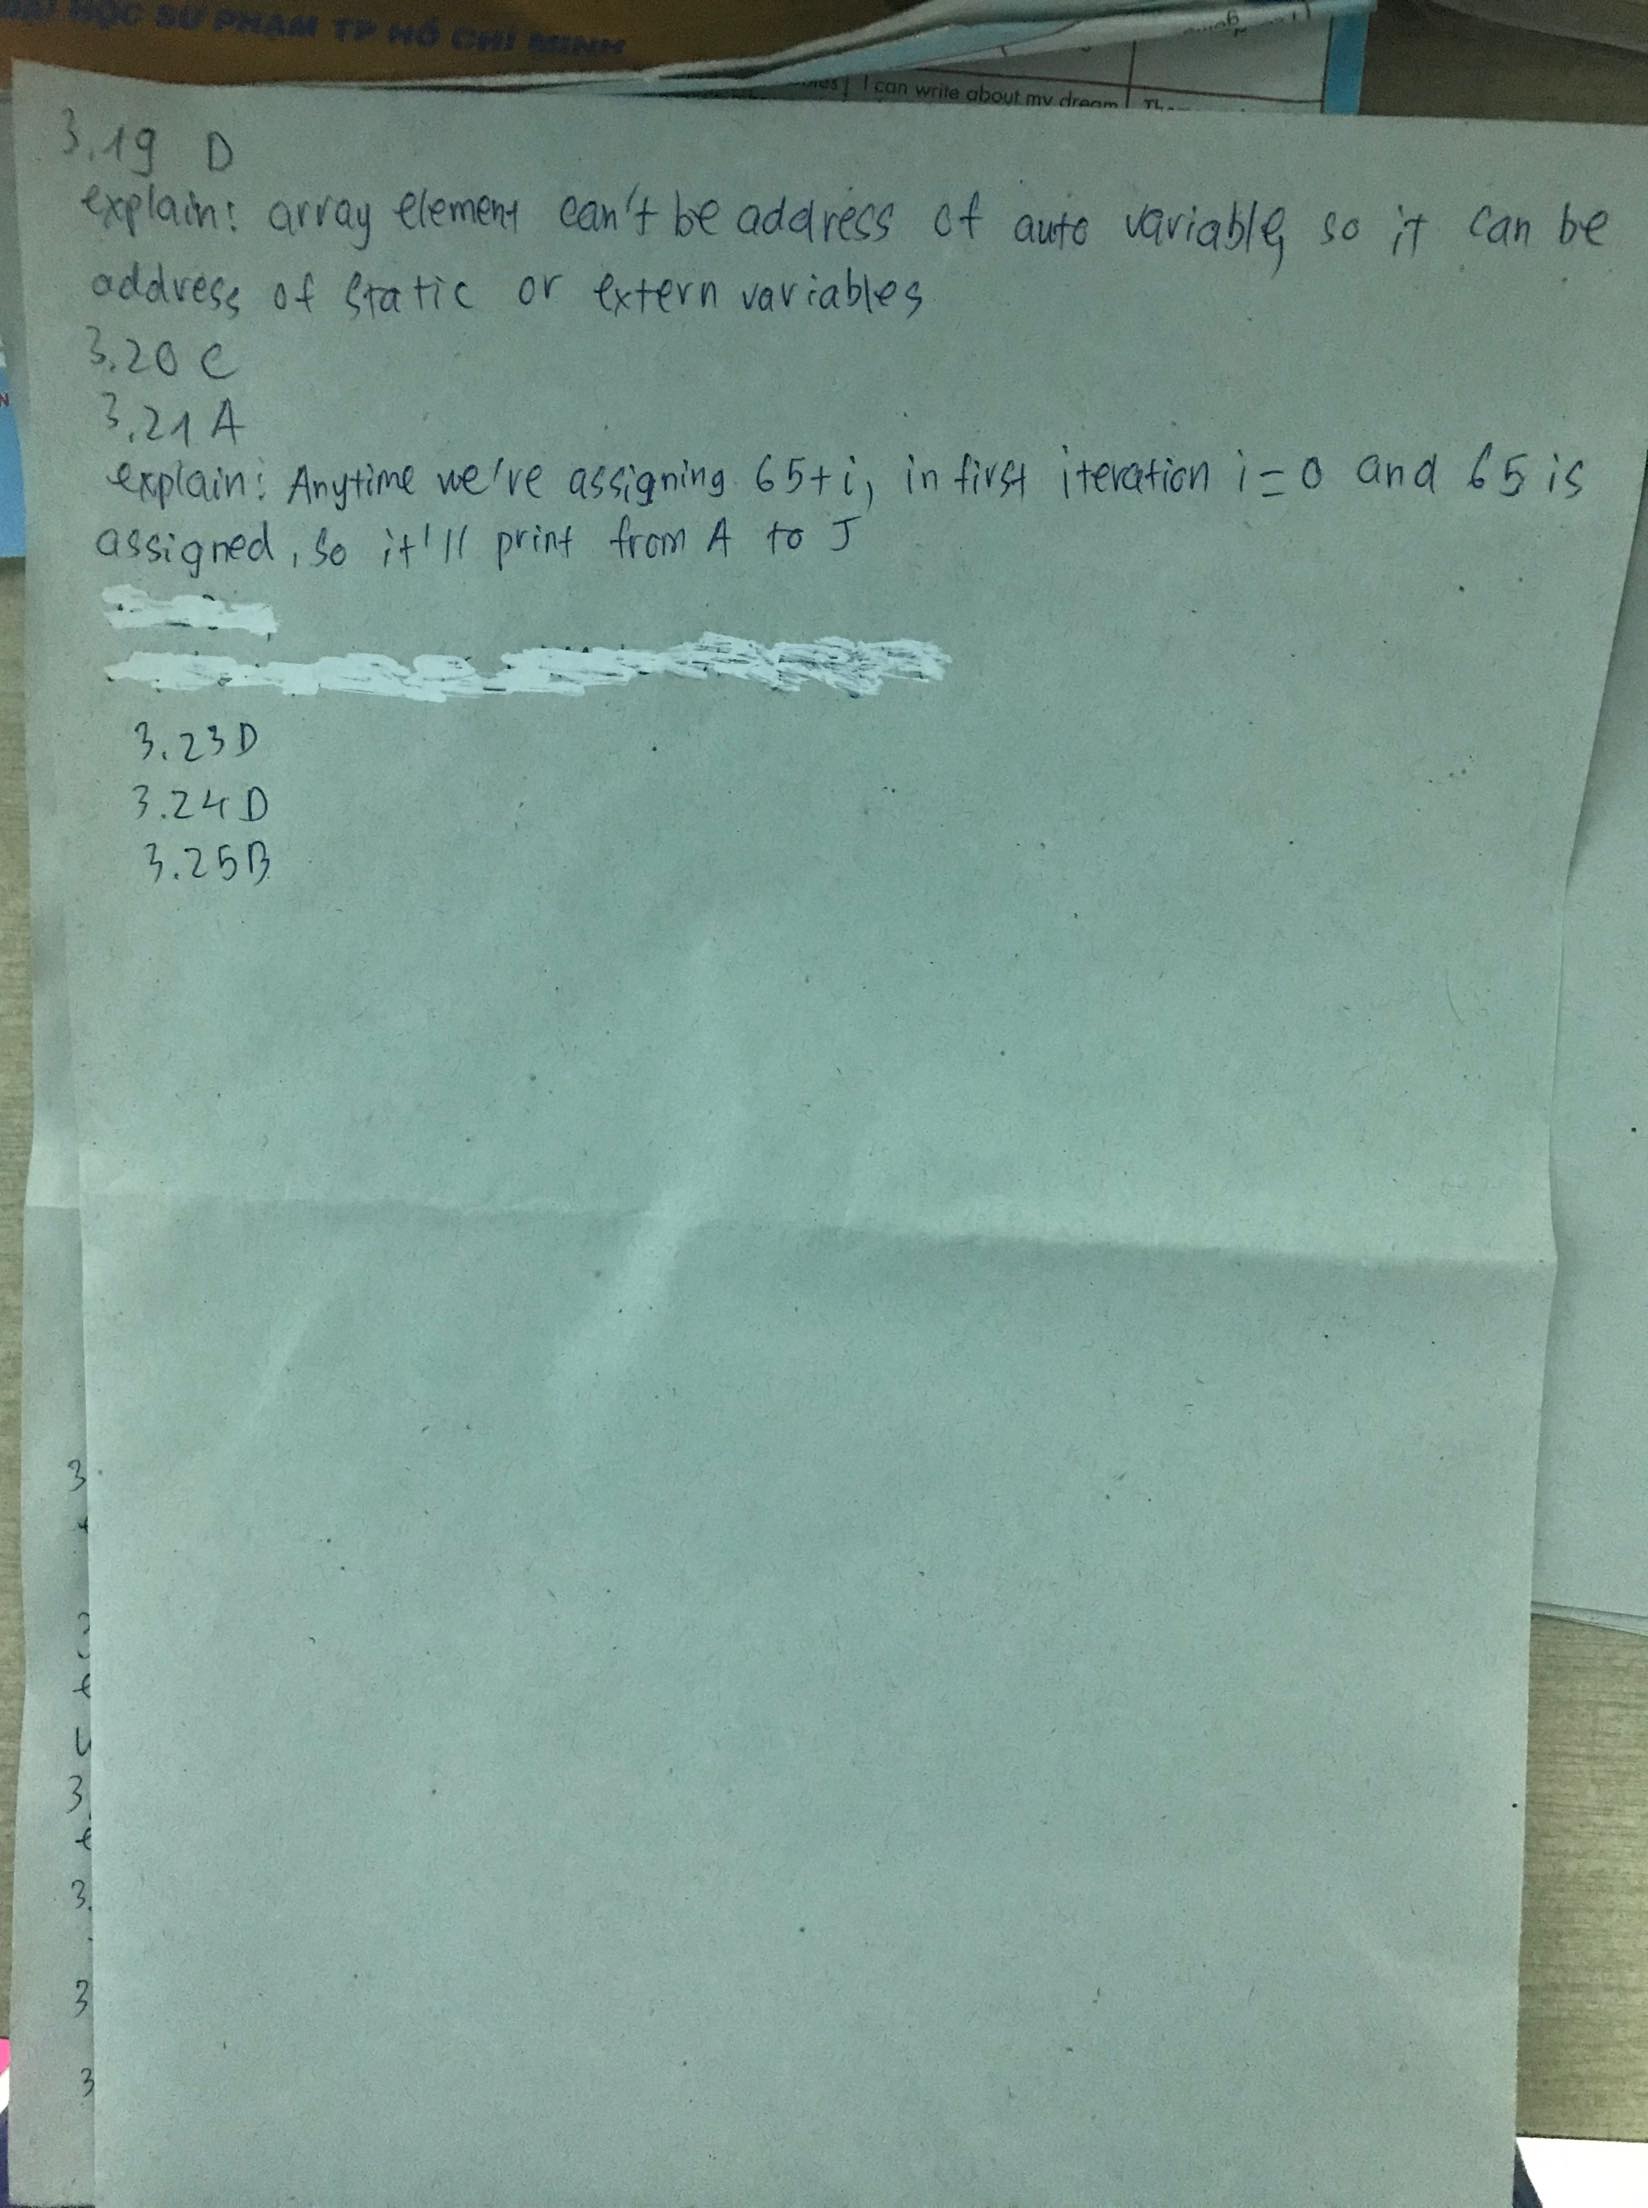 HỌC SƯ PHẠM TP HỒ CHÍ MINH
I can write about my dream
3.19 D
explain: array element can't be address of auto variable, so it can be
address of static or extern variables
3.20 C
3.21 A
explain: Anytime we're assigning 65+i, in first iteration i=0 and 65 is
assigned, so it'll print from A to J
3.23D
3.24D
3.25B
3
3
3
3.
3
3